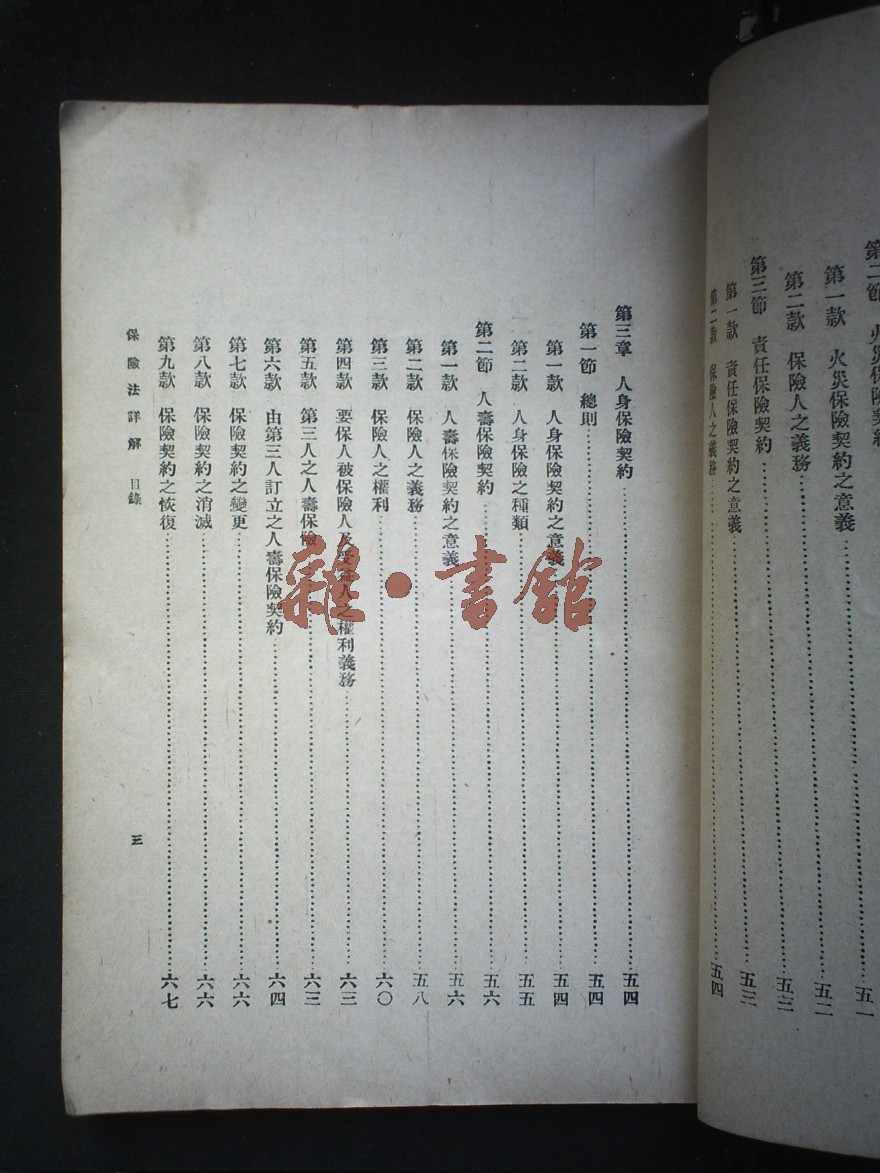 第二節 火災保險契約
第一款 火災保險契約之意義……五一
第二款 保險人之義務……五二
第三節 責任保險契約……五三
第一款 責任保險契約之意義
第二款 保險人之義務……五四
第三章 人身保險契約……五四
第一節 總則……五四
第一款 人身保險契約之意義……五四
第二款 人身保險之種類……五五
第二節 人壽保險契約……五六
第一款 人壽保險契約之意義……五六
第二款 保險人之義務……五八
第三款 保險人之權利……六〇
第四款 要保人被保險人及受益人之權利義務……六三
第五款 第三人之人壽保險……六三
第六款 由第三人訂立之人壽保險契約……六四
第七款 保險契約之變更……六六
第八款 保險契約之消滅……六六
第九款 保險契約之恢復……六七
保險法詳解 目錄 三
雜·書館